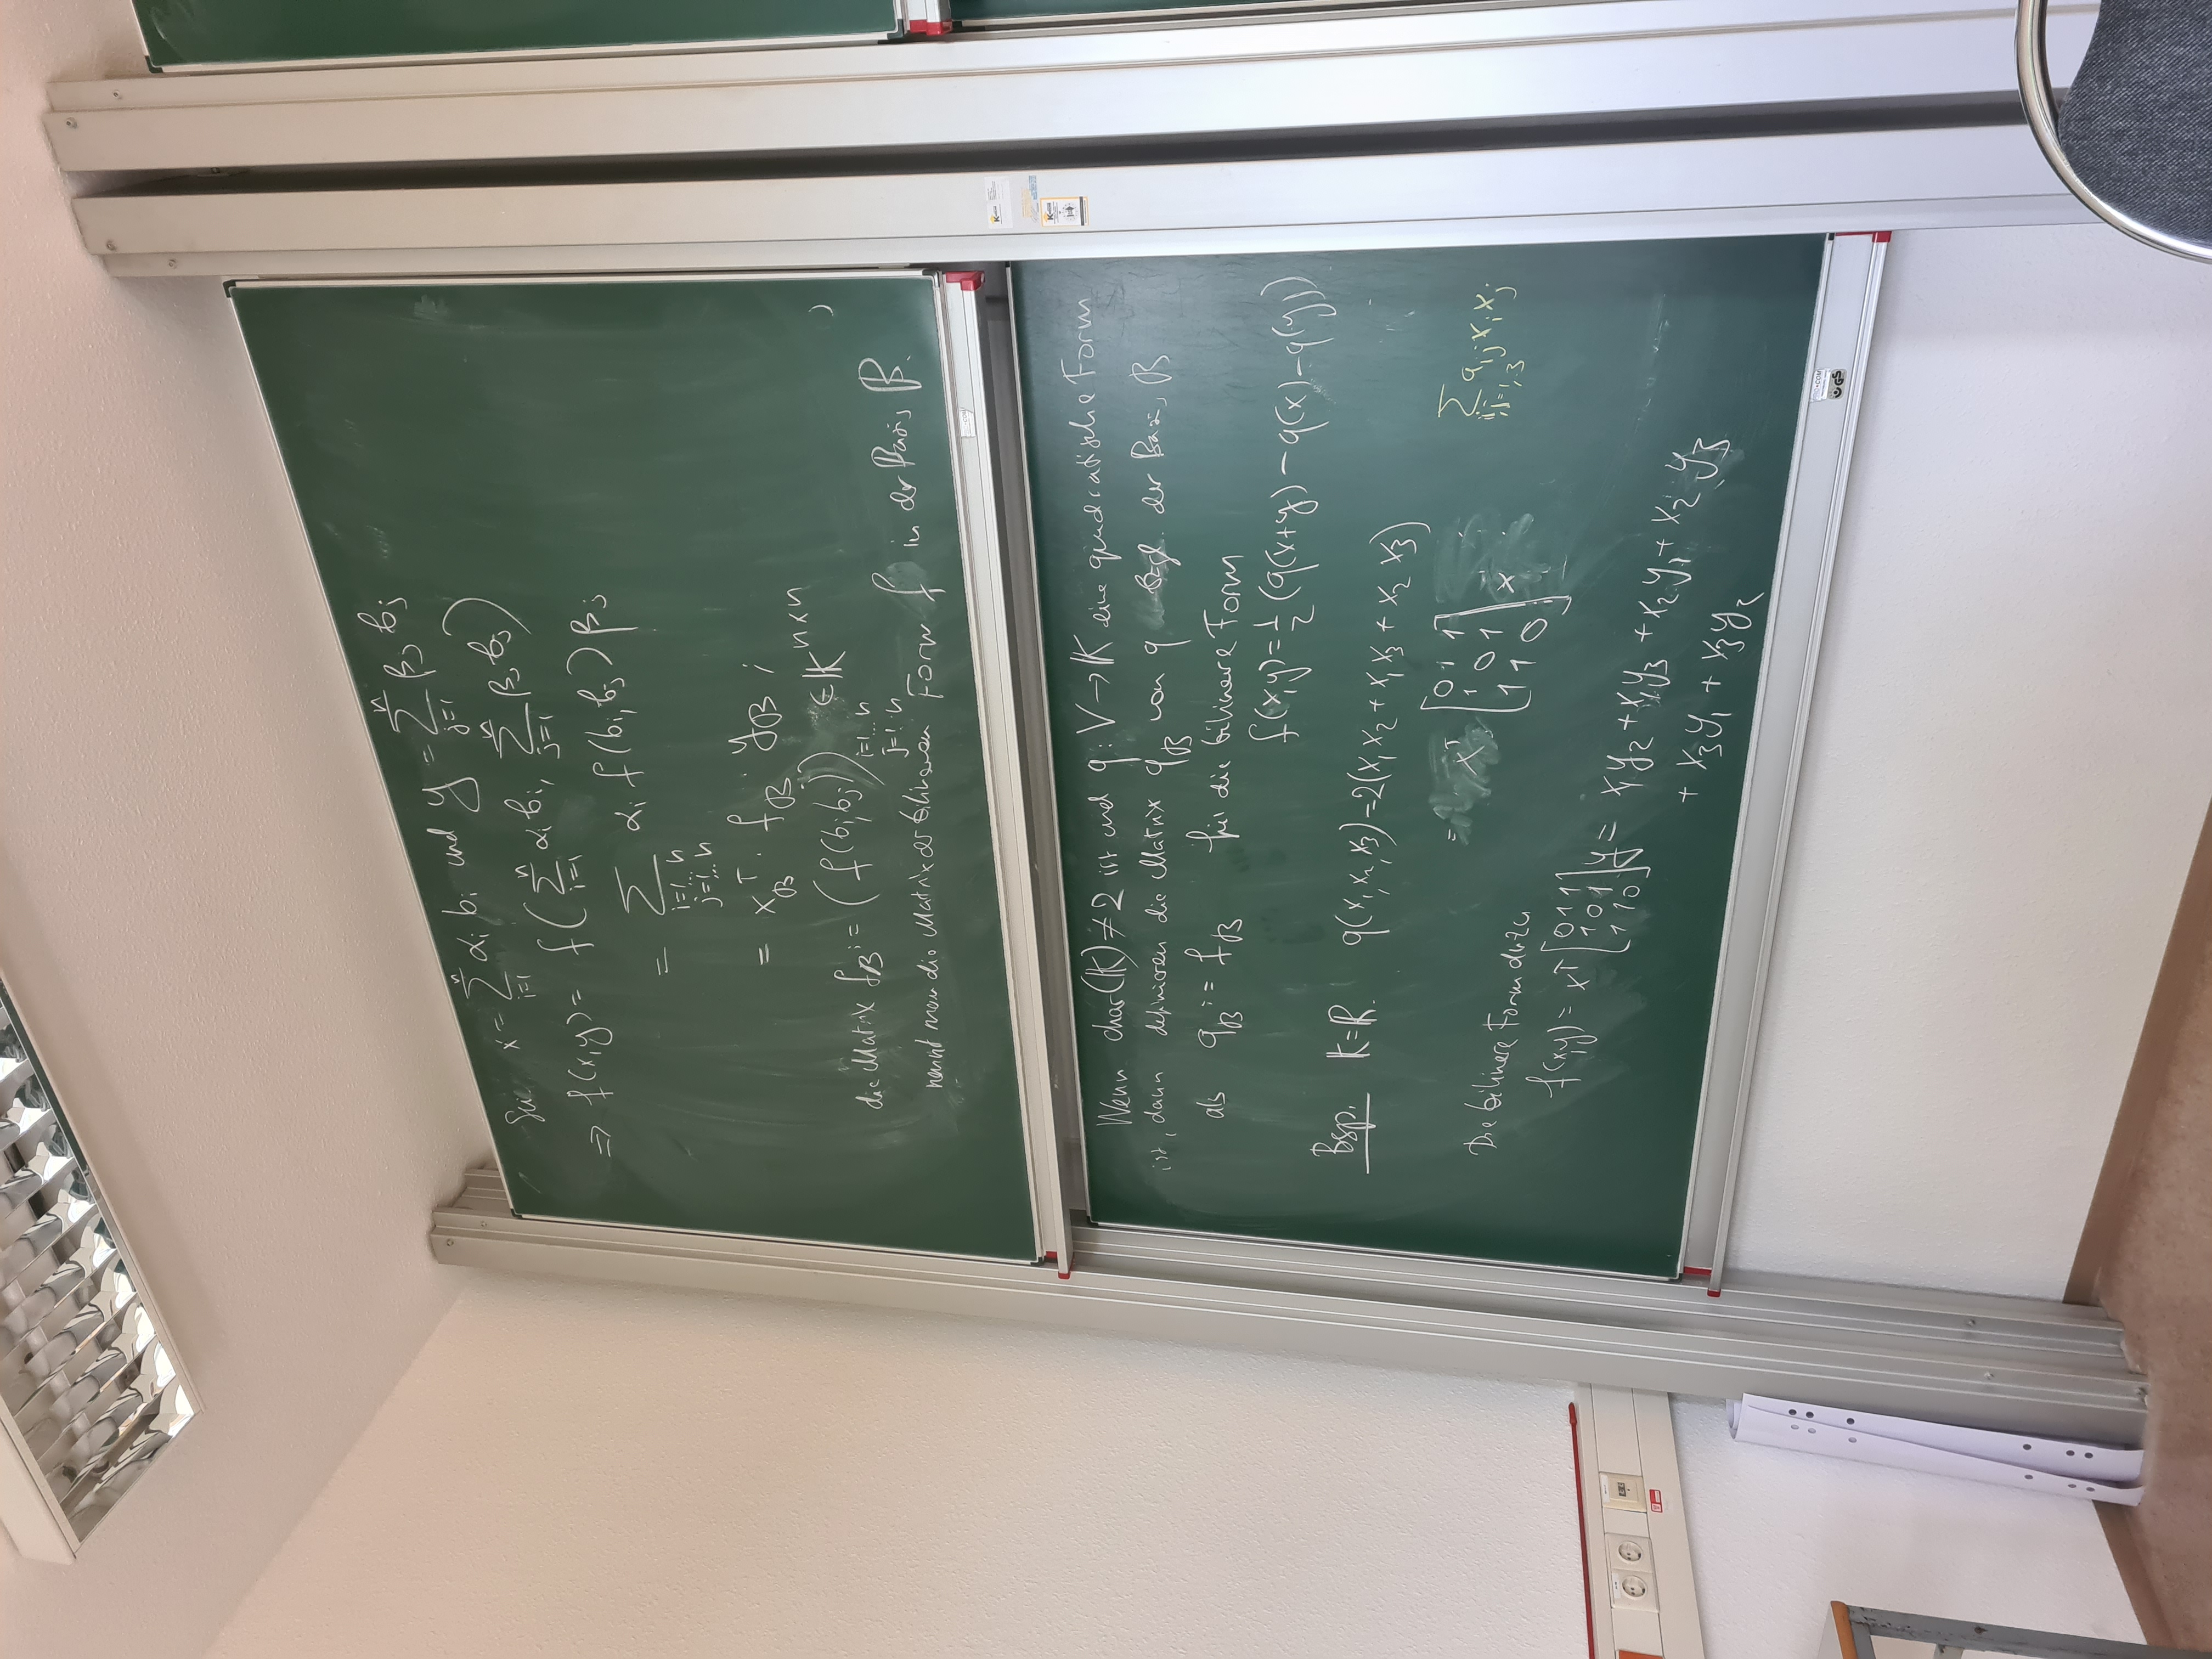 Sei x = ∑_{i=1}^{n} α_i b_i und y = ∑_{j=1}^{n} β_j b_j
⇒ f(x,y) = f(∑_{i=1}^{n} α_i b_i, ∑_{j=1}^{n} β_j b_j)
= ∑_{i=1...n, j=1...n} α_i f(b_i, b_j) β_j
= x_B^T · f_B · y_B ;
die Matrix f_B := (f(b_i, b_j))_{i=1...n, j=1...n} ∈ 𝕂^{n×n}
nennt man die Matrix der bilinearen Form f in der Basis B.
Wenn char(𝕂) ≠ 2 ist und q : V → 𝕂 eine quadratische Form
ist, dann definieren die Matrix q_B von q bzgl. der Basis B
als q_B := f_B für die bilineare Form
f(x,y) = 1/2 (q(x+y) − q(x) − q(y))
Bsp. 𝕂=ℝ. q(x_1, x_2, x_3) = 2(x_1 x_2 + x_1 x_3 + x_2 x_3)
= x^T [0 1 1
1 0 1
1 1 0] x
∑_{i,j=1,3} a_{ij} x_i x_j
Die bilineare Form dazu
f(x,y) = x^T [0 1 1
1 0 1
1 1 0] y = x_1 y_2 + x_1 y_3 + x_2 y_1 + x_2 y_3
+ x_3 y_1 + x_3 y_2
GS